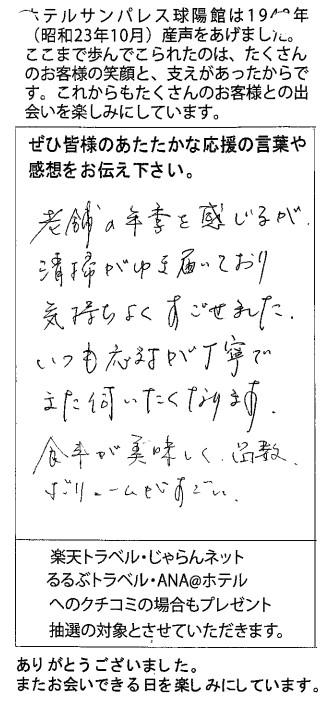 ホテルサンパレス球陽館は1948年
（昭和23年10月）産声をあげました。
ここまで歩んでこられたのは、たくさん
のお客様の笑顔と、支えがあったからで
す。これからもたくさんのお客様との出
会いを楽しみにしています。
ぜひ皆様のあたたかな応援の言葉や
感想をお伝え下さい。
老舗の年季を感じるが、
清掃がゆき届いており
気持ちよくすごせました。
いつも応対が丁寧で
また伺いたくなります。
食事が美味しく、品数、
ボリュームがすごい。
楽天トラベル・じゃらんネット
るるぶトラベル・ANA@ホテル
へのクチコミの場合もプレゼント
抽選の対象とさせていただきます。
ありがとうございました。
またお会いできる日を楽しみにしています。